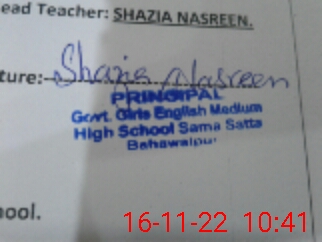 ead Teacher: SHAZIA NASREEN.
ture:- Shazia Nasreen
PRINCIPAL
Govt. Girls English Medium
High School Sama Satta
Bahawalpur
hool.
16-11-22 10:41